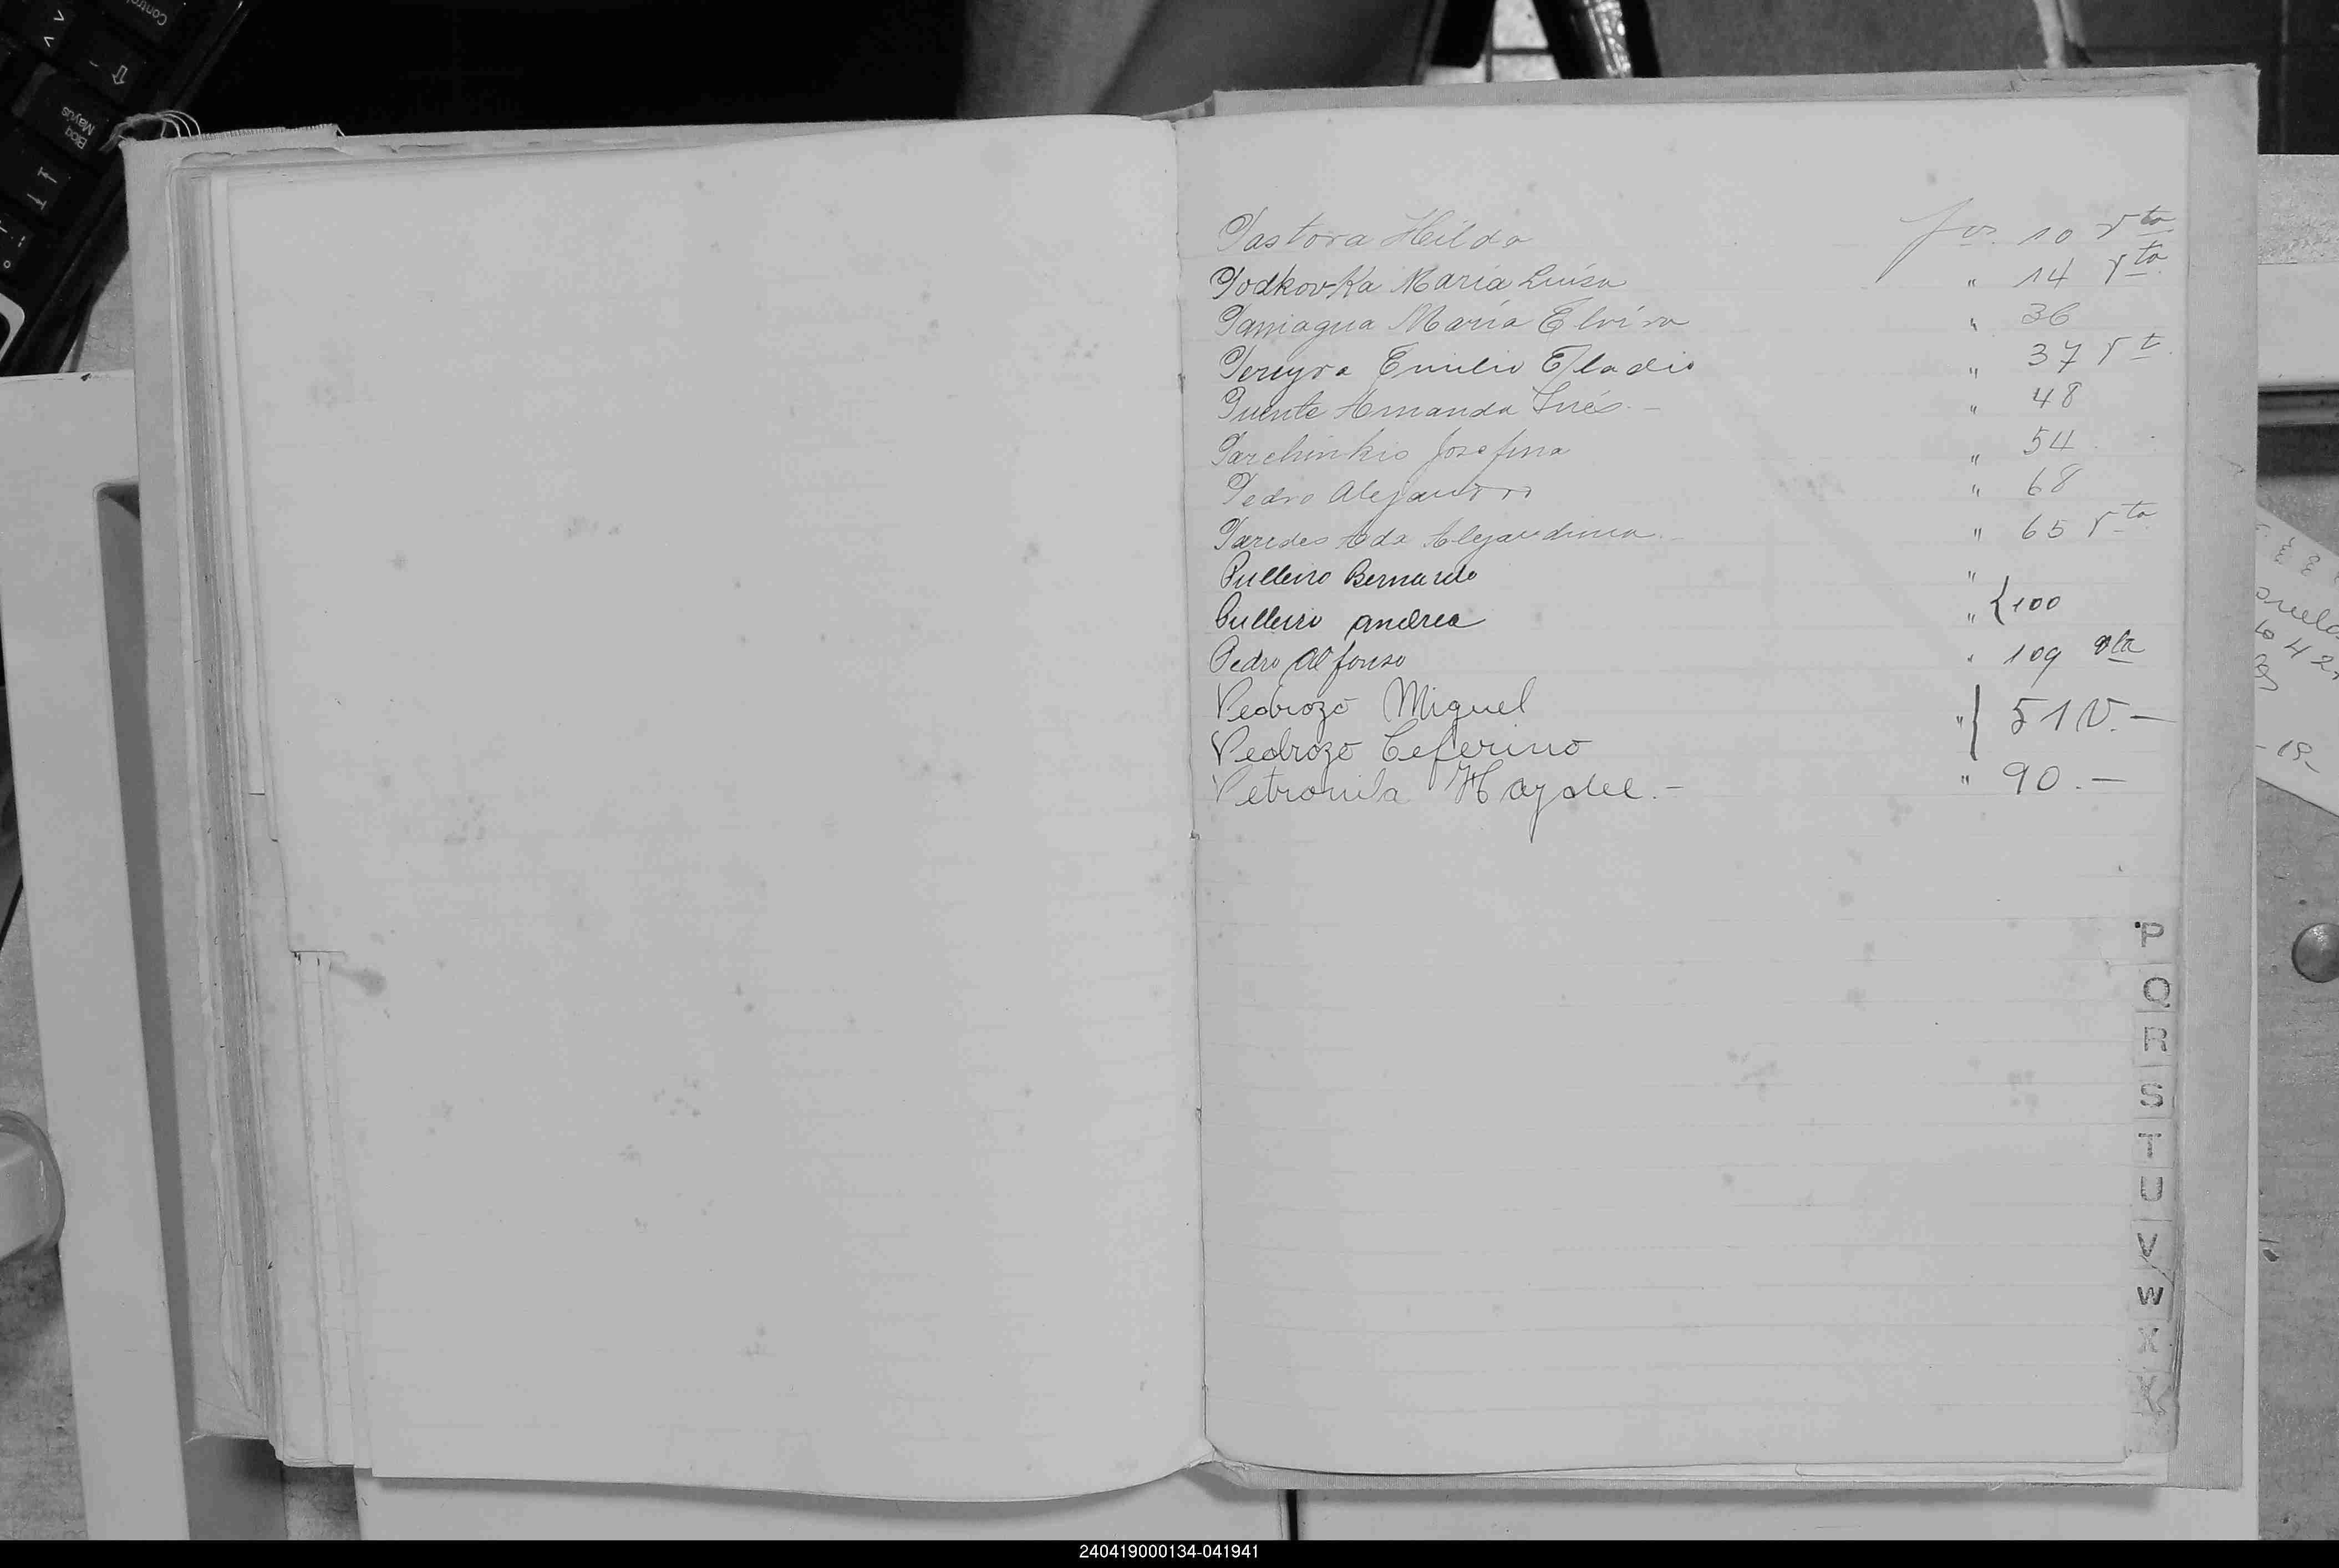 Pastora Hilda fos. 10 vta
Podkovka María Luisa " 14 vta.
Paniagua María Elvira " 36
Pereyra Emilio Eladio " 37 vt.
Puente Amanda Inés.- " 48
Parchinkio Josefina " 54
Pedro Alejandro " 68
Paredes Ada Alejandrina.- " 65 vta
Pulleiro Bernardo "
Pulleiro Andrea " {100
Pedro Alfonso " 109 vta
Pedrozo Miguel "} 51 V.-
Pedrozo Ceferino
Petronila Haydee.- " 90.-
P
Q
R
S
T
U
V
W
X
Y
Bloq
Mayus
Control
240419000134-041941